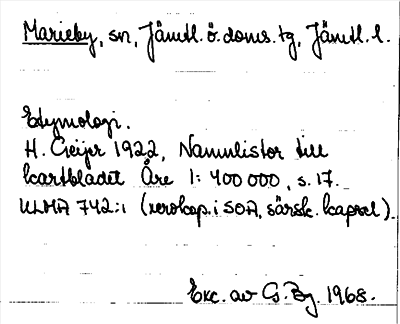 Marieby, sn, Jämtl. ö. doms. tg, Jämtl. l.
Etymologi.
H. Geijer 1922, Namnlistor till
kartbladet Åre 1:400 000, s. 17.
ULMA 742:1 (xerokop. i SOA, särsk. kapsel).
Exc. av G. By. 1968.